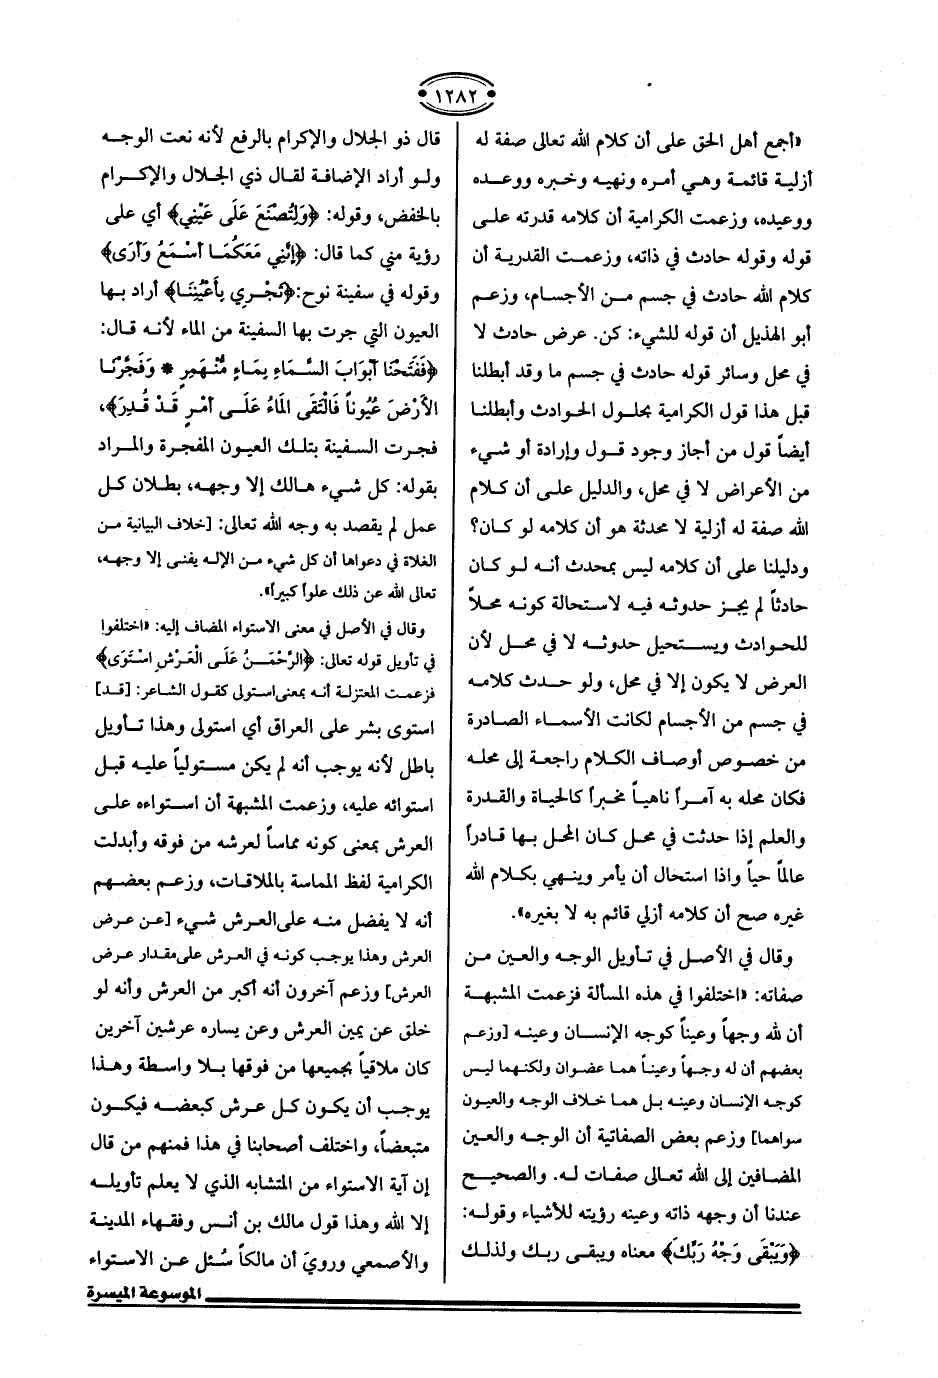 ١٢٨٢
«أجمع أهل الحق على أن كلام الله تعالى صفة له
أزلية قائمة وهي أمره ونهيه وخبره ووعده
ووعيده، وزعمت الكرامية أن كلامه قدرته على
قوله وقوله حادث في ذاته، وزعمت القدرية أن
كلام الله حادث في جسم من الأجسام، وزعم
أبو الهذيل أن قوله للشيء: كن. عرض حادث لا
في محل وسائر قوله حادث في جسم ما وقد أبطلنا
قبل هذا قول الكرامية بحلول الحوادث وأبطلنا
أيضاً قول من أجاز وجود قول وإرادة أو شيء
من الأعراض لا في محل، والدليل على أن كلام
الله صفة له أزلية لا محدثة هو أن كلامه لو كان؟
ودليلنا على أن كلامه ليس بمحدث أنه لو كان
حادثاً لم يجز حدوثه فيه لاستحالة كونه محلاً
للحوادث ويستحيل حدوثه لا في محل لأن
العرض لا يكون إلا في محل، ولو حدث كلامه
في جسم من الأجسام لكانت الأسماء الصادرة
من خصوص أوصاف الكلام راجعة إلى محله
فكان محله به آمراً ناهياً مخبراً كالحياة والقدرة
والعلم إذا حدثت في محل كان المحل بها قادراً
عالماً حياً واذا استحال أن يأمر وينهي بكلام الله
غيره صح أن كلامه أزلي قائم به لا بغيره».
وقال في الأصل في تأويل الوجه والعين من
صفاته: «اختلفوا في هذه المسألة فزعمت المشبهة
أن لله وجهاً وعيناً كوجه الإنسان وعينه [وزعم
بعضهم أن له وجهاً وعيناً هما عضوان ولكنهما ليس
كوجه الإنسان وعينه بل هما خلاف الوجه والعيون
سواهما] وزعم بعض الصفاتية أن الوجه والعين
المضافين إلى الله تعالى صفات له. والصحيح
عندنا أن وجهه ذاته وعينه رؤيته للأشياء وقوله:
﴿وَيَبْقَى وَجْهُ رَبِّكَ﴾ معناه ويبقى ربك ولذلك
قال ذو الجلال والإكرام بالرفع لأنه نعت الوجه
ولو أراد الإضافة لقال ذي الجلال والإكرام
بالخفض، وقوله: ﴿وَلِتُصْنَعَ عَلَى عَيْنِي﴾ أي على
رؤية مني كما قال: ﴿إِنَّنِي مَعَكُمَا أَسْمَعُ وَأَرَى﴾
وقوله في سفينة نوح:﴿تَجْرِي بِأَعْيُنِنَا﴾ أراد بها
العيون التي جرت بها السفينة من الماء لأنه قال:
﴿فَفَتَحْنَا أَبْوَابَ السَّمَاءِ بِمَاءٍ مُنْهَمِرٍ * وَفَجَّرْنَا
الأَرْضَ عُيُوناً فَالْتَقَى المَاءُ عَلَى أَمْرٍ قَدْ قُدِرَ﴾،
فجرت السفينة بتلك العيون المفجرة والمراد
بقوله: كل شيء هالك إلا وجهه، بطلان كل
عمل لم يقصد به وجه الله تعالى: [خلاف البيانية من
الغلاة في دعواها أن كل شيء من الإله يفنى إلا وجهه،
تعالى الله عن ذلك علواً كبيراً».
وقال في الأصل في معنى الاستواء المضاف إليه: «اختلفوا
في تأويل قوله تعالى: ﴿الرَّحْمَنُ عَلَى الْعَرْشِ اسْتَوَى﴾
فزعمت المعتزلة أنه بمعنى استولى كقول الشاعر: [قد]
استوى بشر على العراق أي استولى وهذا تأويل
باطل لأنه يوجب أنه لم يكن مستولياً عليه قبل
استوائه عليه، وزعمت المشبهة أن استواءه على
العرش بمعنى كونه مماساً لعرشه من فوقه وأبدلت
الكرامية لفظ المماسة بالملاقات، وزعم بعضهم
أنه لا يفضل منه على العرش شيء [عن عرض
العرش وهذا يوجب كونه في العرش على مقدار عرض
العرش] وزعم آخرون أنه أكبر من العرش وأنه لو
خلق عن يمين العرش وعن يساره عرشين آخرين
كان ملاقياً بجميعها من فوقها بلا واسطة وهذا
يوجب أن يكون كل عرش كبعضه فيكون
متبعضاً، واختلف أصحابنا في هذا فمنهم من قال
إن آية الاستواء من المتشابه الذي لا يعلم تأويله
إلا الله وهذا قول مالك بن أنس وفقهاء المدينة
والأصمعي ورويَ أن مالكاً سُئل عن الاستواء
الموسوعة الميسرة